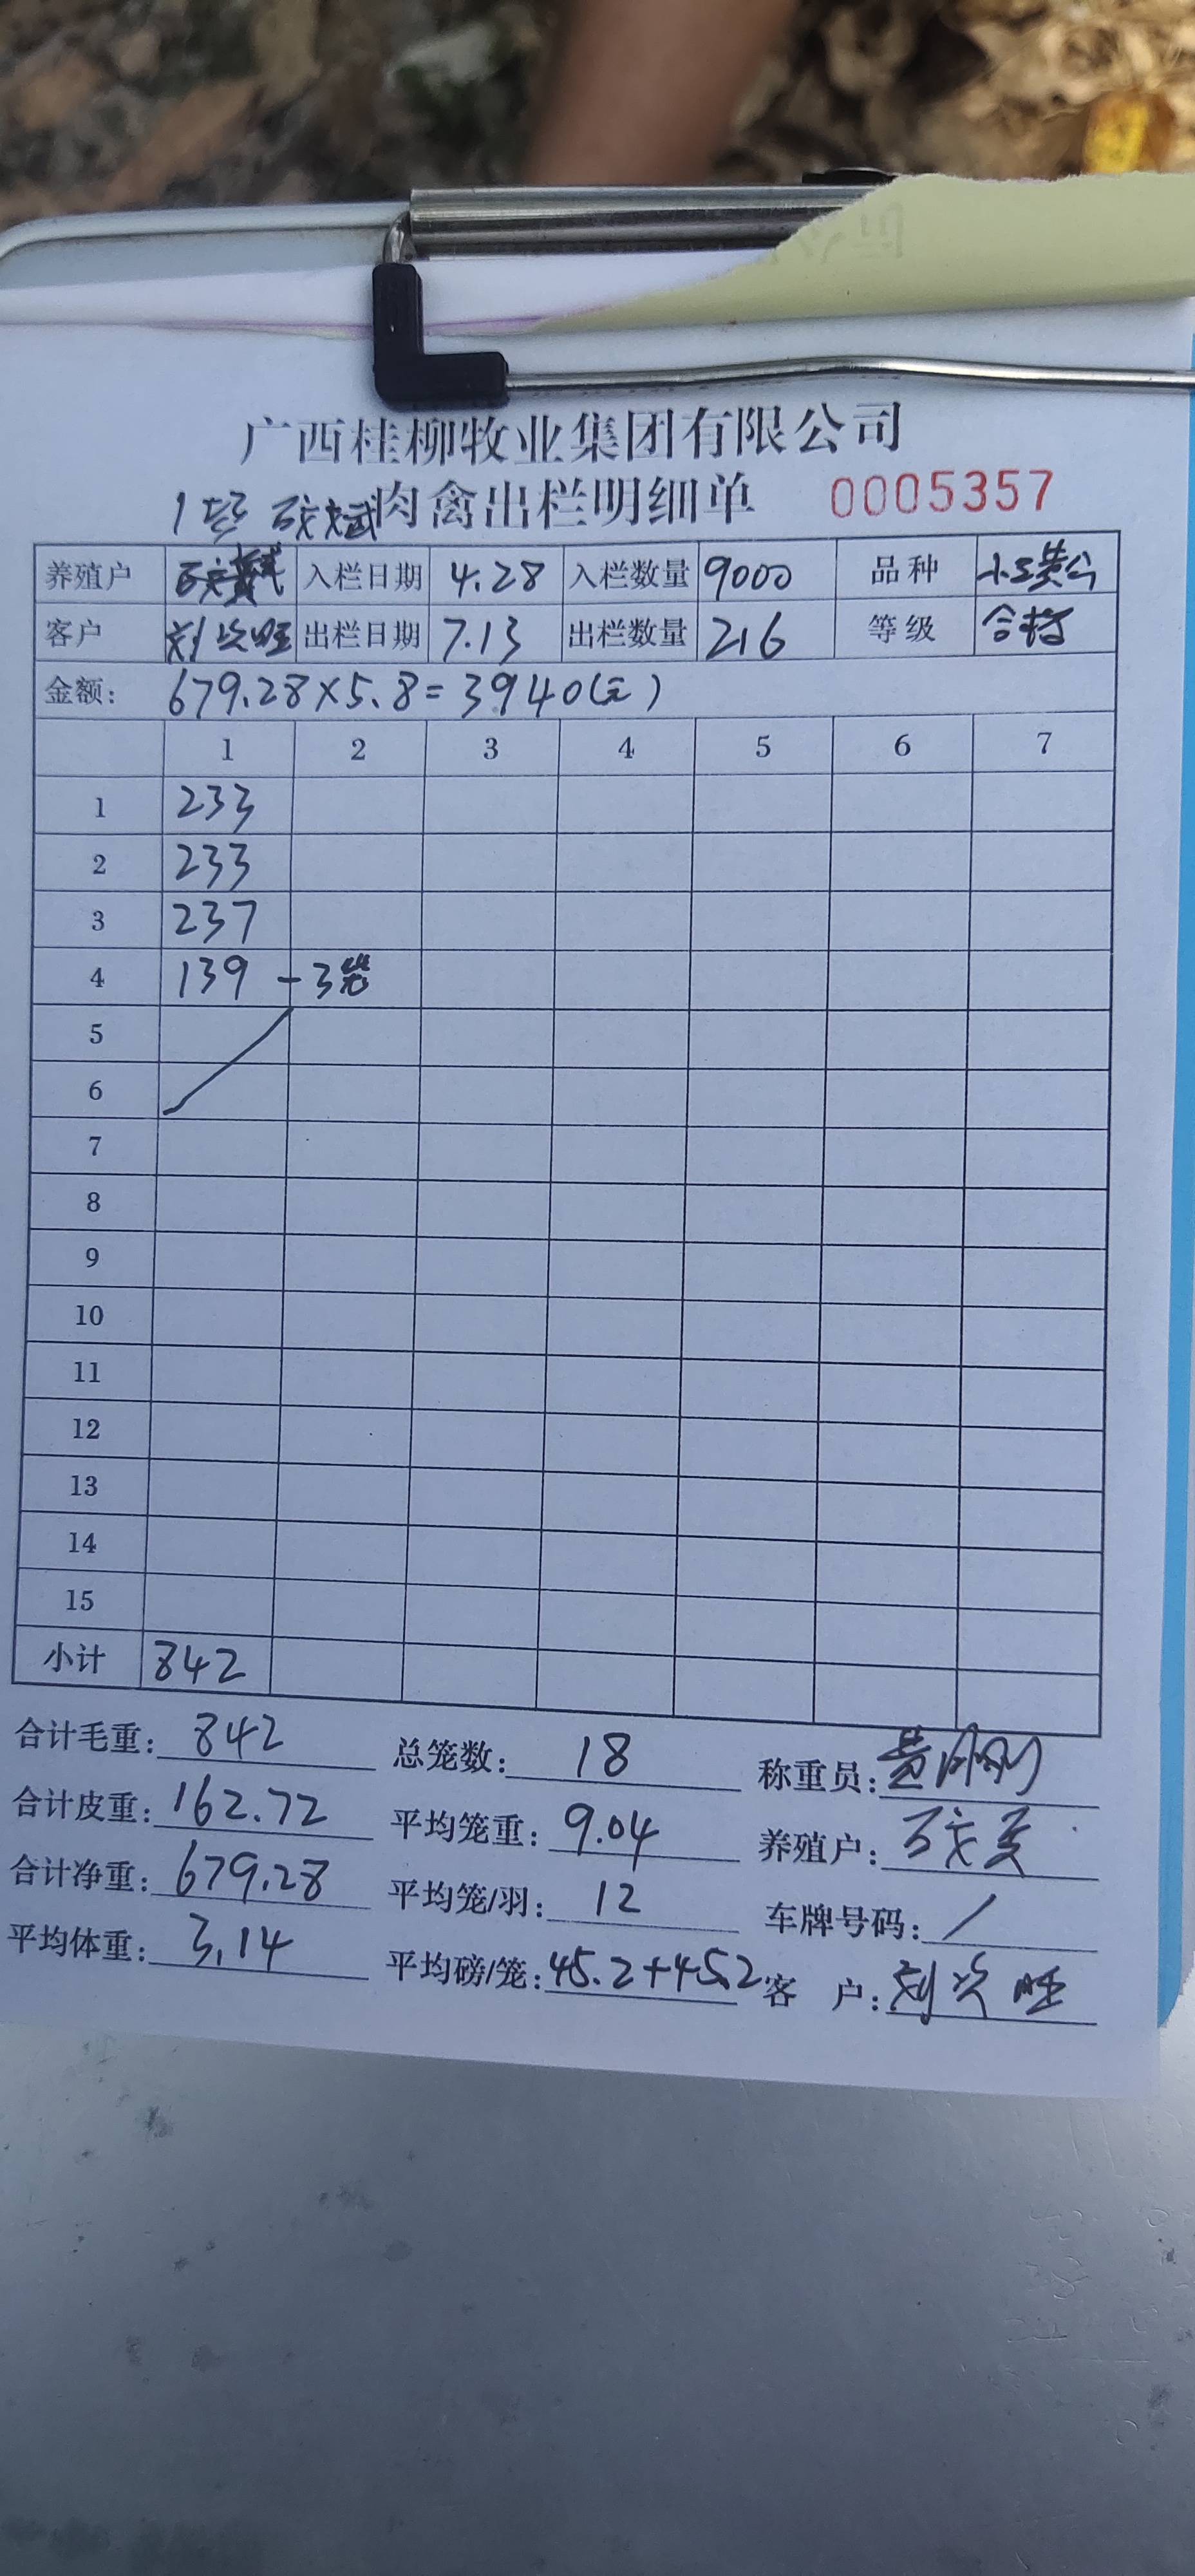 广西桂柳牧业集团有限公司
肉禽出栏明细单 0005357
养殖户 入栏日期 4.28 入栏数量 9000 品种
客户 出栏日期 7.13 出栏数量 216 等级 合格
金额: 679.28×5.8=3940(元)
1 2 3 4 5 6 7
1 233
2 233
3 237
4 139 -3笼
5
6
7
8
9
10
11
12
13
14
15
小计 842
合计毛重: 842 总笼数: 18 称重员: 黄刚刚
合计皮重: 162.72 平均笼重: 9.04 养殖户:
合计净重: 679.28 平均笼/羽: 12 车牌号码: /
平均体重: 3.14 平均磅/笼: 45.2+45.2 客 户: